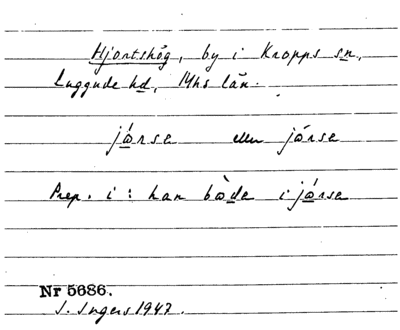 Hjortshög, by i Kropps sn,
Luggude hd, Mhs län.
járse eller jårse
Prep. i : han bòde i járse
Nr 5686.
I. Ingers 1947.